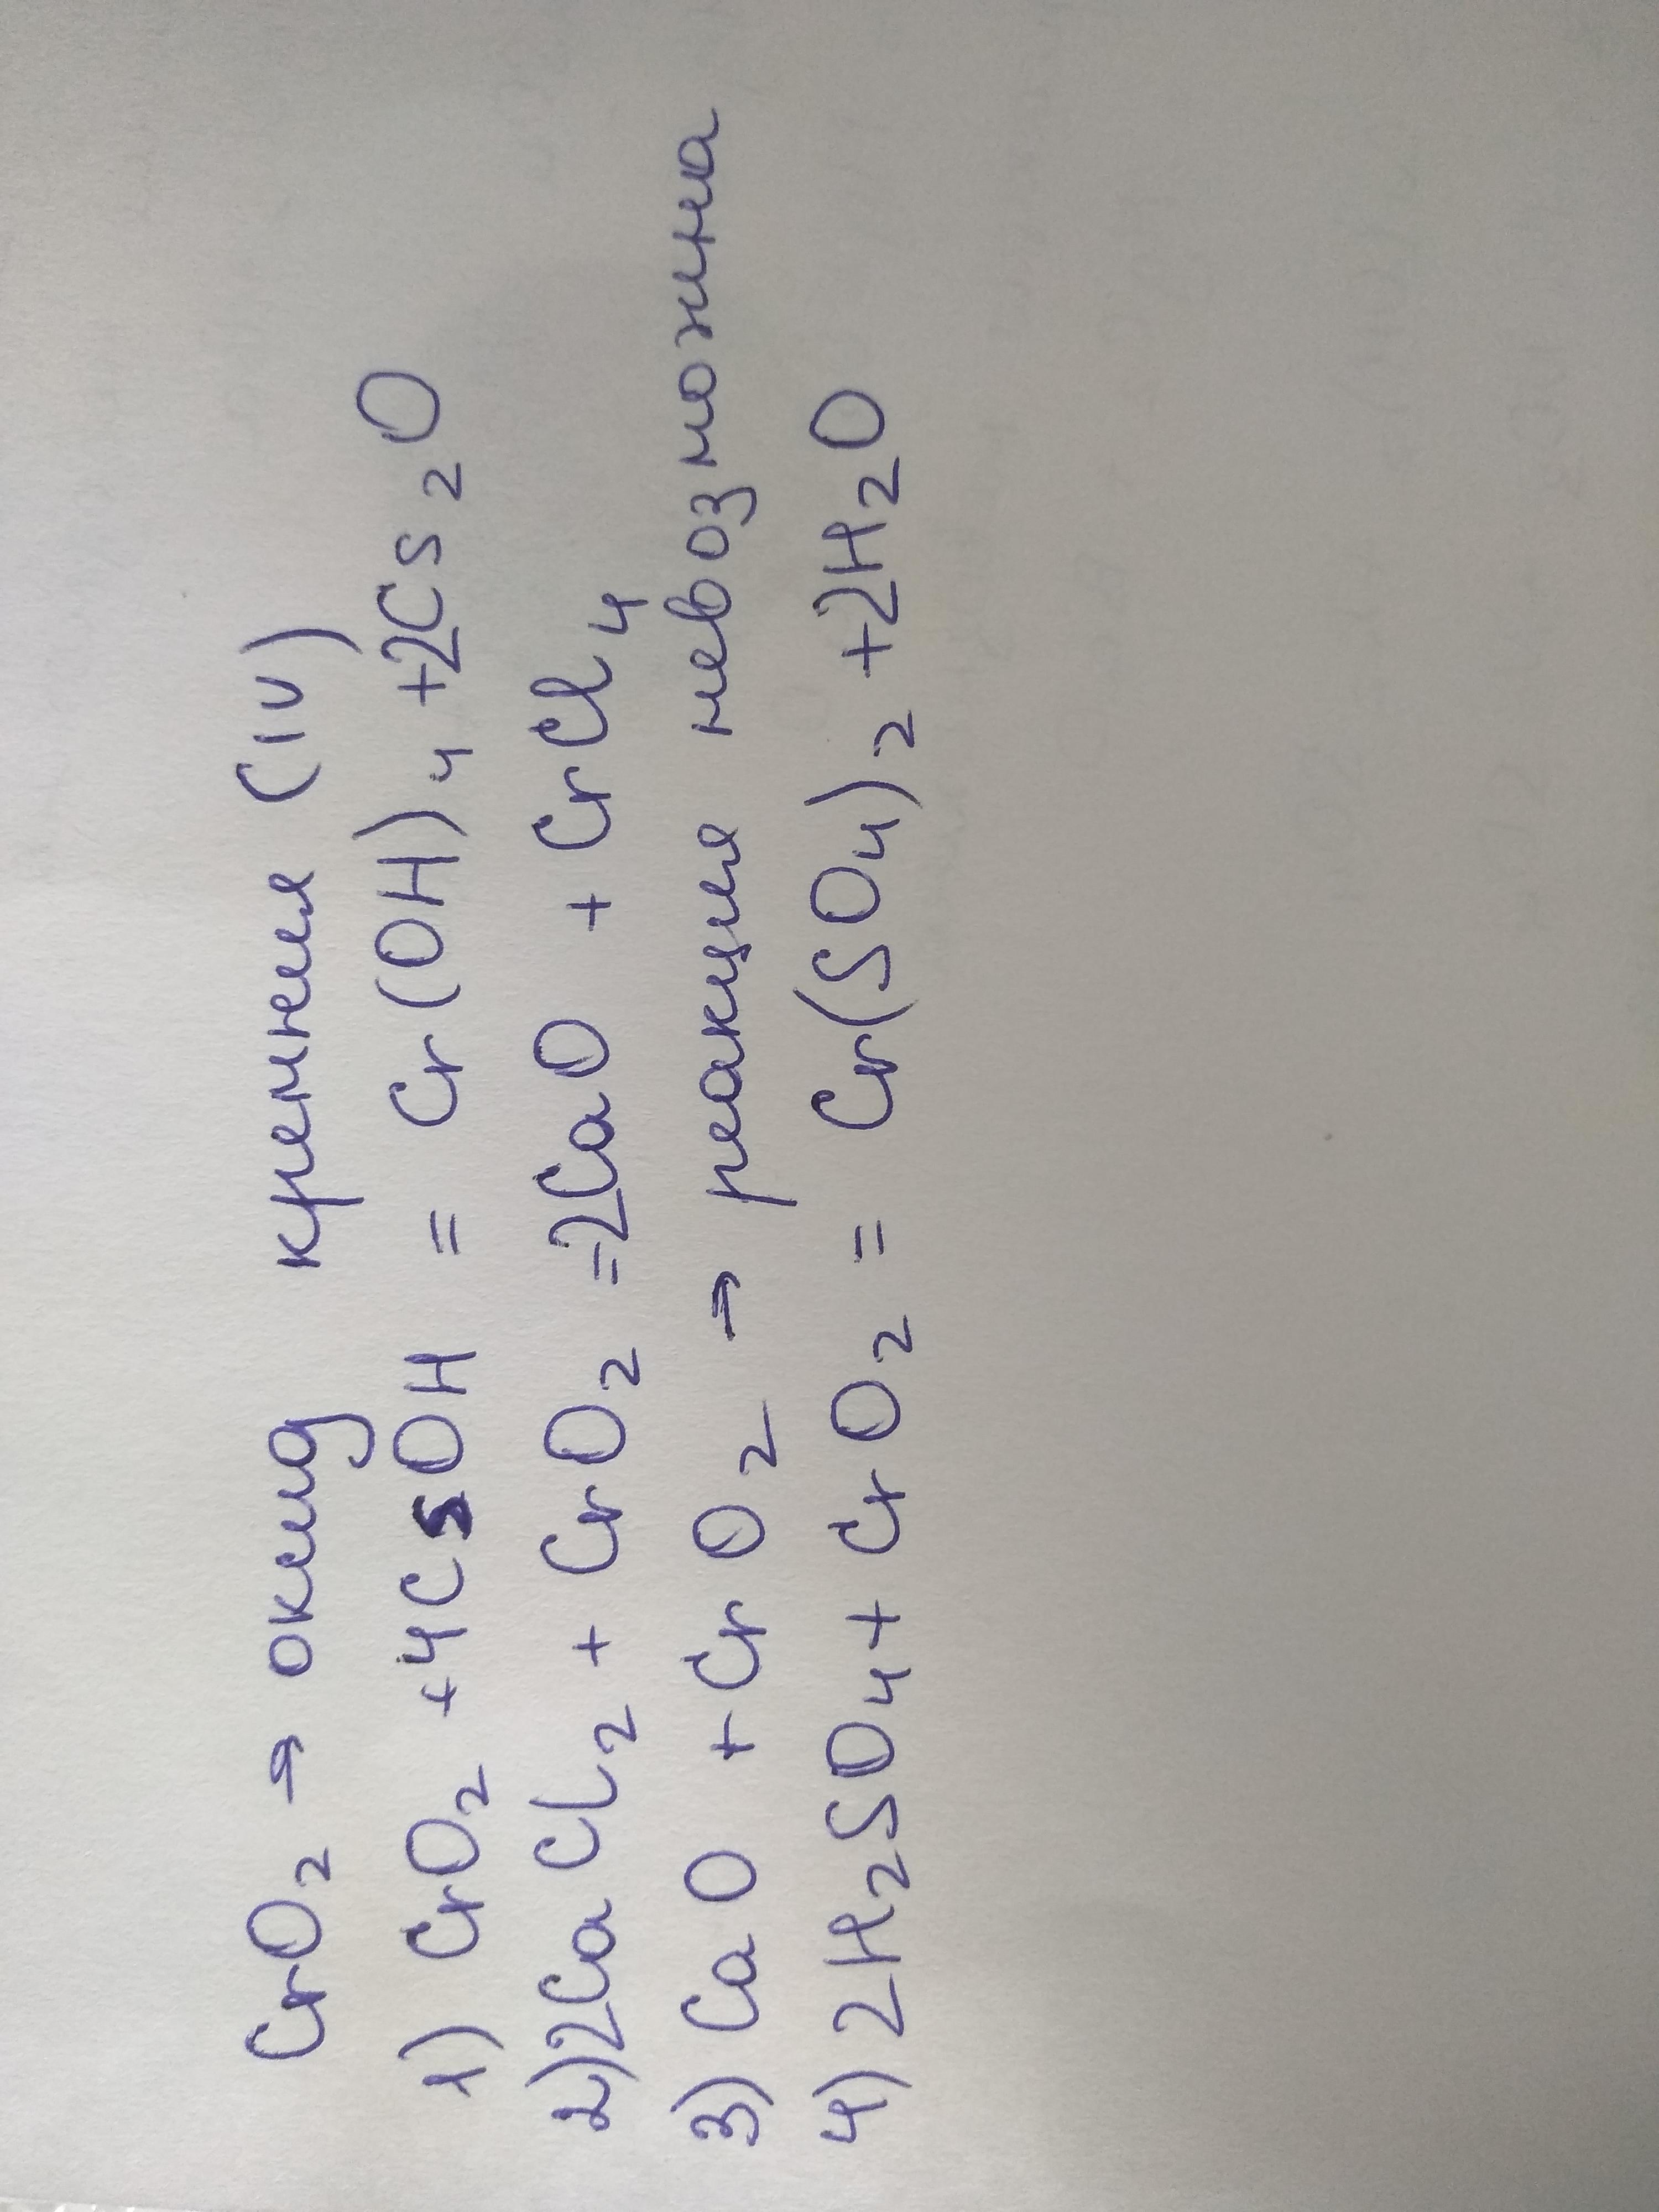 CrO₂ → оксид кремния (IV)
1) CrO₂ + 4CsOH = Cr(OH)₄ + 2Cs₂O
2) 2CaCl₂ + CrO₂ = 2CaO + CrCl₄
3) CaO + CrO₂ → реакция невозможна
4) 2H₂SO₄ + CrO₂ = Cr(SO₄)₂ + 2H₂O